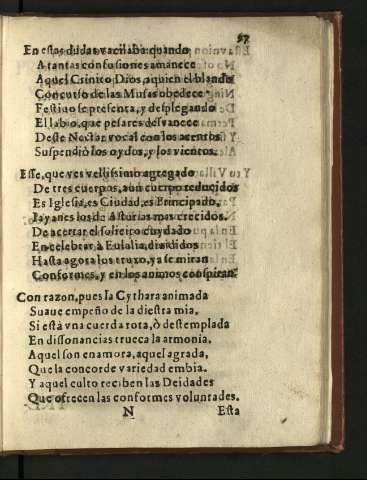 97
En estas dudas vacilaba quando
A tantas confusiones amanece
Aquel Crinito Dios, aquien el blando
Concurso de las Musas obedece
Festiuo se presenta, y desplegando
El labio, que pesares desvanece
Deste Nectar vocal con los acentos
Suspendiò los oydos, y los vientos.
Esse, que ves vellissimo agregado
De tres cuerpos, aun cuerpo reducidos
Es Iglesia, es Ciudad, es Principado,
Iayanes los de Asturias mas crecidos.
De acertar el solicito cuydado
En celebrar à Eulalia, diuididos
Hasta agora los truxo, ya se miran
Conformes, y en los animos conspiran.
Con razon, pues la Cythara animada
Suaue empeño de la diestra mia,
Si està vna cuerda rota, ò destemplada
En dissonancias trueca la armonia.
Aquel son enamora, aquel agrada,
Que la concorde variedad embia.
Y aquel culto reciben las Deidades
Que ofrecen las conformes voluntades.
N Esta